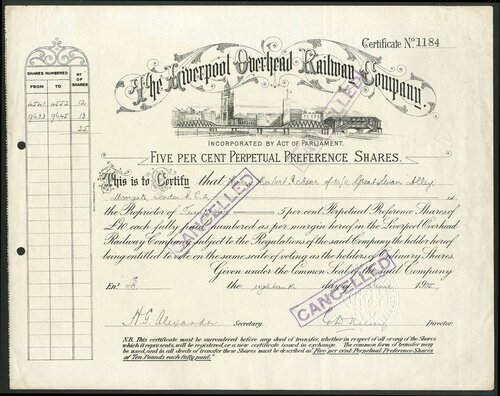 Certificate No 1184
The Liverpool Overhead Railway Company.
INCORPORATED BY ACT OF PARLIAMENT.
FIVE PER CENT PERPETUAL PREFERENCE SHARES.
SHARES NUMBERED
No OF SHARES
FROM
TO
4541 4552 12
9633 9645 13
25
This is to Certify that Herbert of 10/11 Great Swan Alley
Moorgate London E.C.2 is
the Proprietor of 5 per cent Perpetual Preference Shares of
£10 each fully paid numbered as per margin hereof in the Liverpool Overhead
Railway Company subject to the Regulations of the said Company the holder hereof
being entitled to vote on the same scale of voting as the holders of Ordinary Shares.
Given under the Common Seal of the said Company
the eighteenth day of June 19
A.G. Alexander Secretary.
Director.
N.B. This certificate must be surrendered before any deed of transfer, whether in respect of all or any of the Shares
which it represents, will be registered or a new certificate issued in exchange. The common form of transfer may
be used, and in all deeds of transfer these Shares must be described as Five per cent Perpetual Preference Shares
of Ten Pounds each, fully paid.
CANCELLED
CANCELLED
CANCELLED